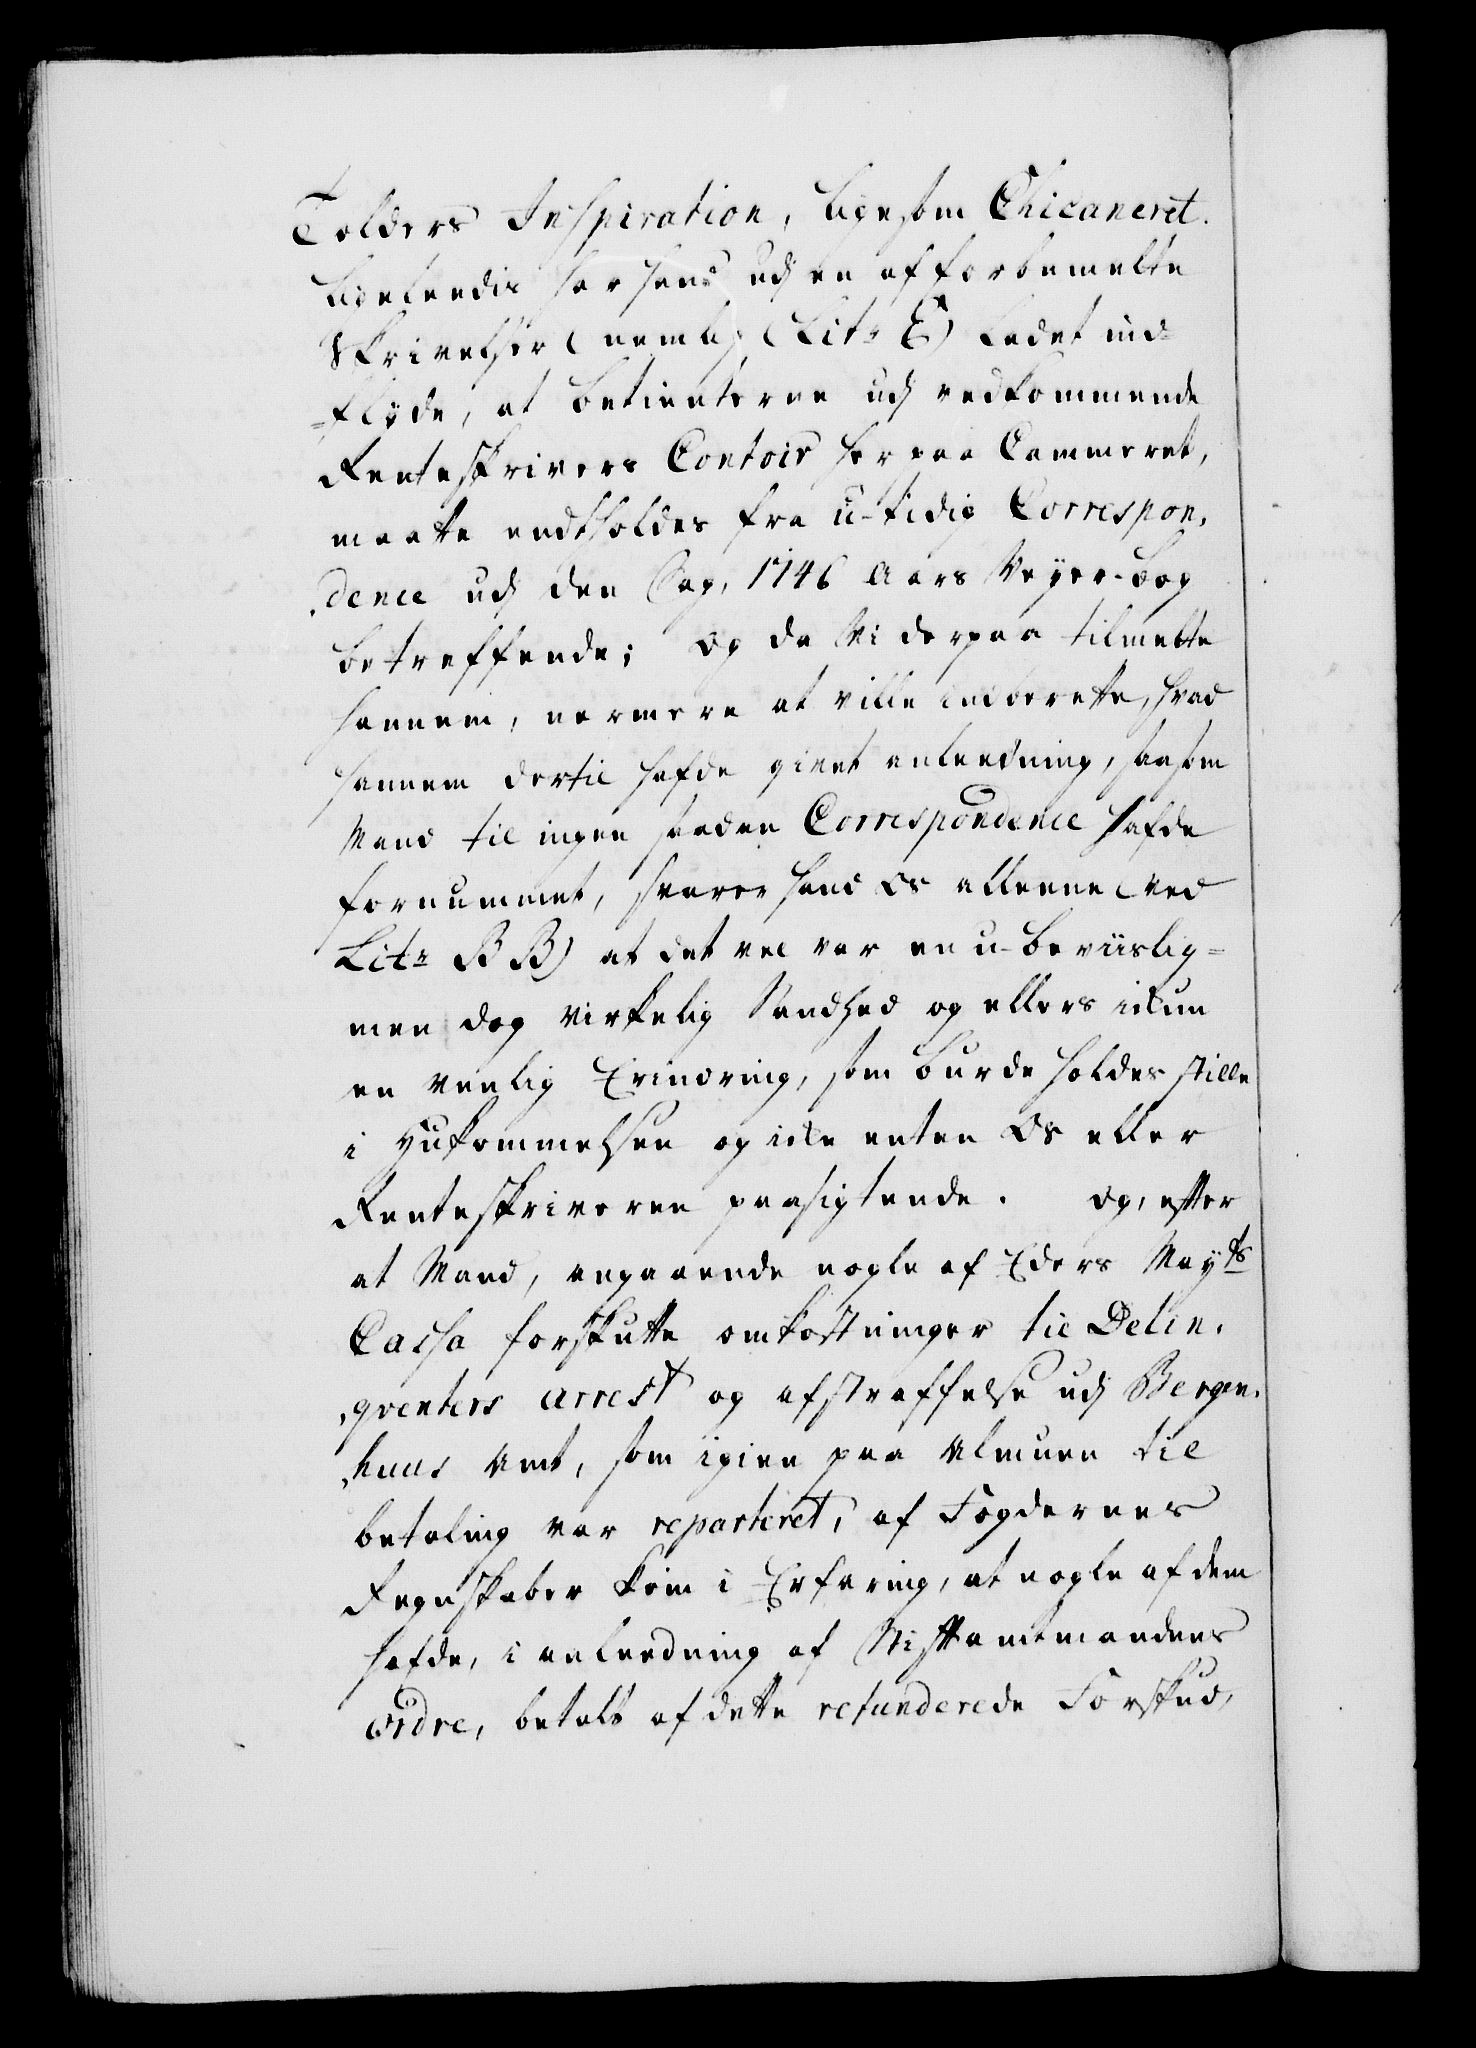 Tolders Inspiration, ligesom Chicaneret.
Ligeleedis har hand udj en af forbemelte
Skrivelser (nemlig Litr E) ladet ind-
-flyde, at betienterne udj vedkommende
Renteskrivers Contoir her paa Cammeret,
maatte endtholdes fra u-tidig Correspon,
,dence udj den Sag, 1746 Aars Veyer-bog
betreffende; Og da Vi derpaa tilmelte
hannem, nermere at ville indberette, hvad
hannem dertil hafde givet anleedning, saasom
Mand til ingen saadan Correspondence hafde
fornummet, svarer hand Os alleene (ved
Litr BB) at det vel var en u-beviislig-
men dog virkelig Sandhed og ellers ickun
en venlig Erindring, som burde holdes stille
i Hukommelsen og icke enten Os eller
Renteskriveren paasigtende. Og, efter
at Mand, angaaende nogle af Eders Mayts
Cassa forskutte omkostninger til Delin,
,qventers arrest og afstraffelse udj Bergen,
,huus Amt, som igien paa Almuen til
betaling var reparteret, af Fogdernes
Regnskaber kom i Erfaring, at nogle af dem
hafde, i anleedning af Stiftamtmandens
Ordre, betalt af dette refunderede Forskud,